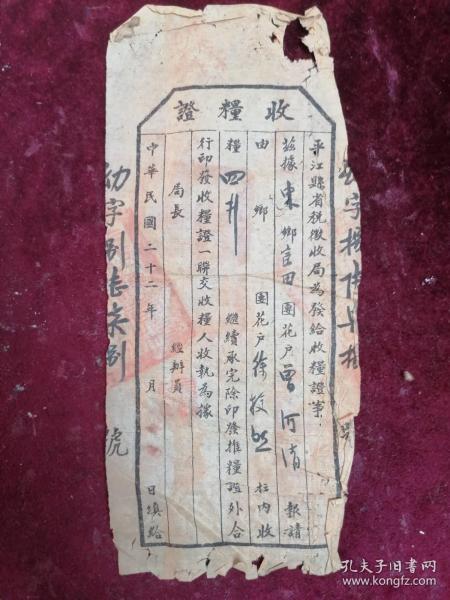 收糧證
平江縣省稅徵收局為發給收糧證事
茲據東鄉官田團花戶曾河清報請
由鄉團花戶徐拉內收
糧四升繼續承完除印發推糧證外合
行印發收糧證一聯交收糧人收執為據
局長經辦員
中華民國二十二年月日填給
幼字號
孔夫子旧书网
www.kongfz.com